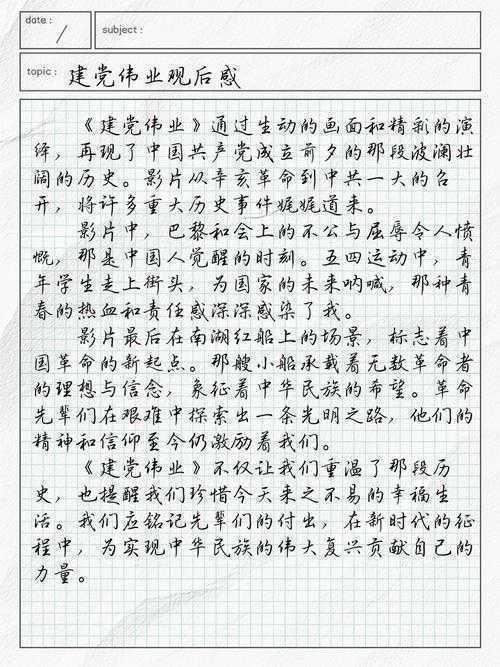 date :
/
subject :
topic : 建党伟业观后感
《建党伟业》通过生动的画面和精彩的演
绎，再现了中国共产党成立前夕的那段波澜壮
阔的历史。影片从辛亥革命到中共一大的召
开，将许多重大历史事件娓娓道来。
影片中，巴黎和会上的不公与屈辱令人愤
慨，那是中国人觉醒的时刻。五四运动中，青
年学生走上街头，为国家的未来呐喊，那种青
春的热血和责任感深深感染了我。
影片最后在南湖红船上的场景，标志着中
国革命的新起点。那艘小船承载着无数革命者
的理想与信念，象征着中华民族的希望。革命
先辈们在艰难中探索出一条光明之路，他们的
精神和信仰至今仍激励着我们。
《建党伟业》不仅让我们重温了那段历
史，也提醒我们珍惜今天来之不易的幸福生
活。我们应铭记先辈们的付出，在新时代的征
程中，为实现中华民族的伟大复兴贡献自己的
力量。